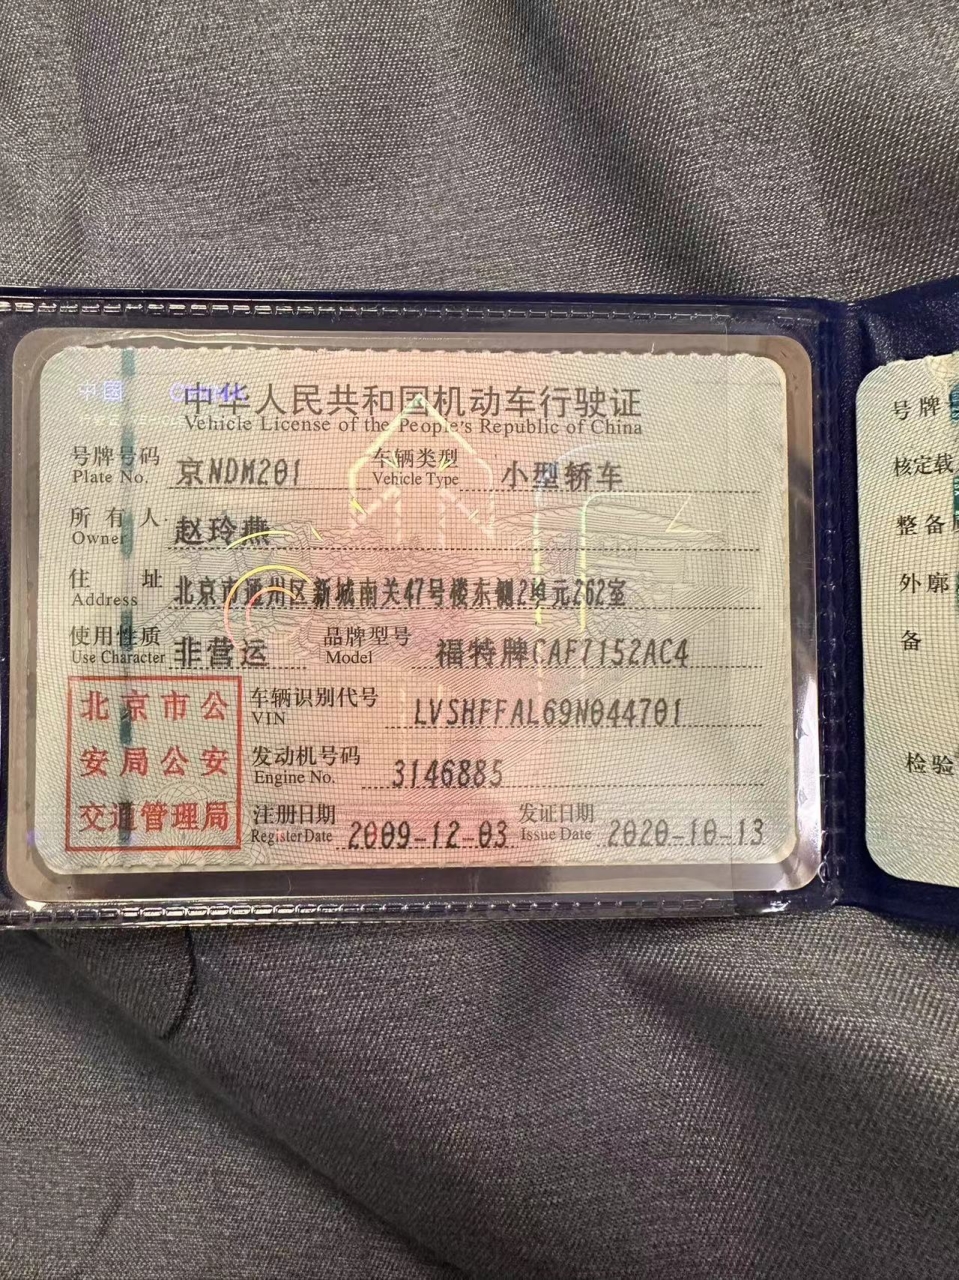 中国 China
中华人民共和国机动车行驶证
Vehicle License of the People's Republic of China
号牌号码 京NDM201 车辆类型 小型轿车
Plate No. Vehicle Type
所有人 赵玲燕
Owner
住址 北京市通州区新城南关47号楼东侧2单元262室
Address
使用性质 非营运 品牌型号 福特牌CAF7152AC4
Use Character Model
北京市公
安局公安
交通管理局
车辆识别代号 LVSHFFAL69N044701
VIN
发动机号码 3146885
Engine No.
注册日期 2009-12-03 发证日期 2020-10-13
Register Date Issue Date
号牌
核定载
整备
外廓
备
检验